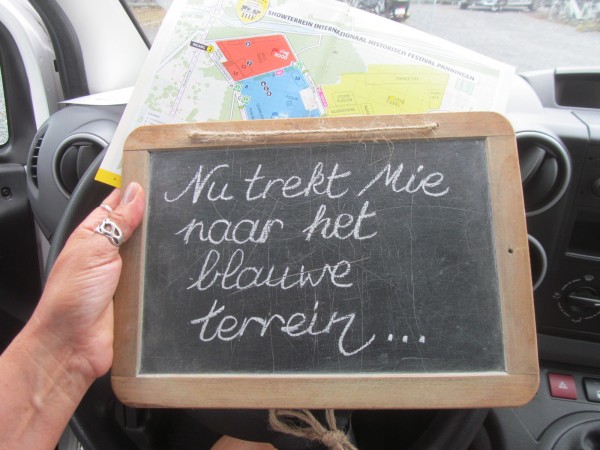 SHOWTERREIN INTERNATIONAAL HISTORISCH FESTIVAL PANNINGEN
Nu trekt Mie
naar het
blauwe
terrein...